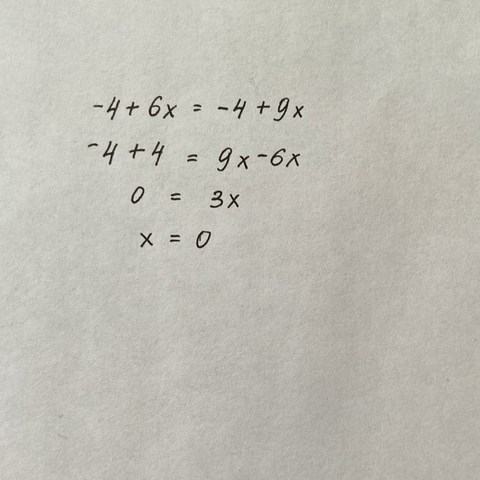 -4 + 6x = -4 + 9x
-4 + 4 = 9x - 6x
0 = 3x
x = 0